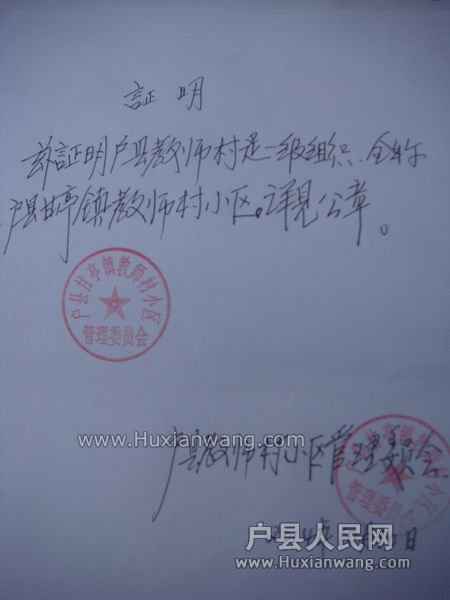 証明
兹証明户县教师村是一级组织、全称
户县甘亭镇教师村小区。详見公章。
户县甘亭镇教师村小区
管理委员会
www.Huxianwang.com
户县教师村小区管理委员会
日
户县人民网
www.Huxianwang.com